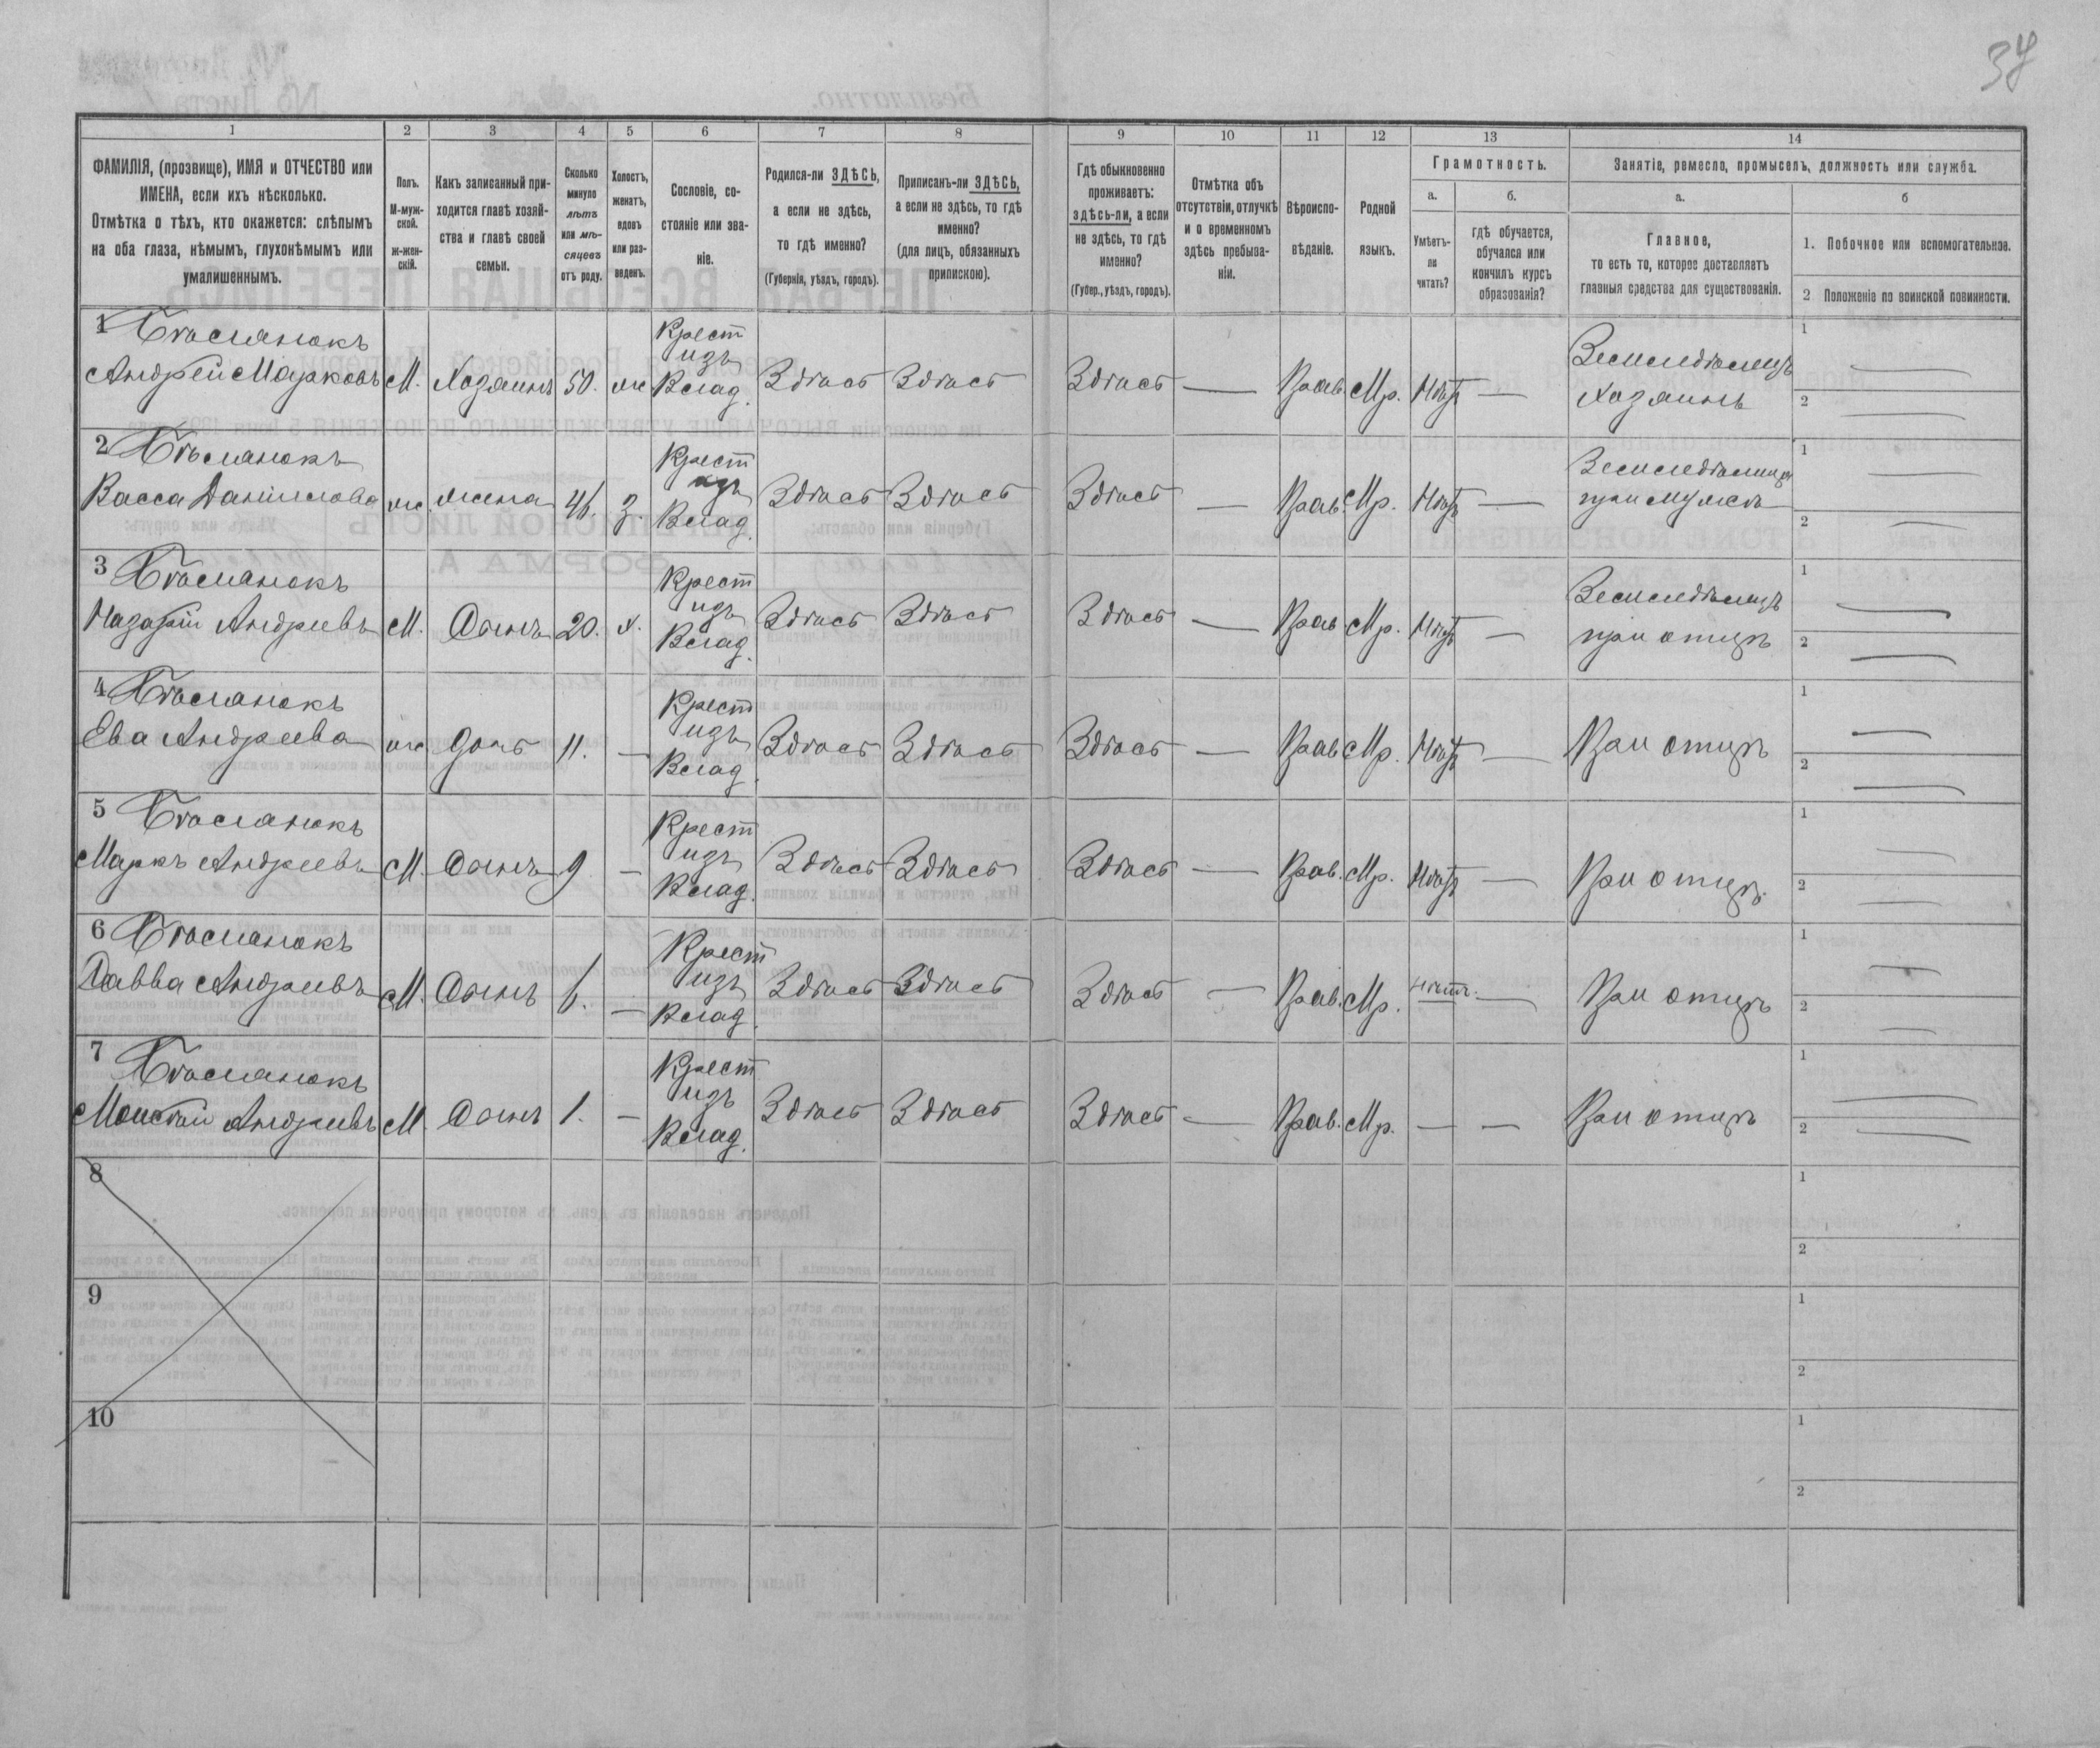 37
1 2 3 4 5 6 7 8 9 10 11 12 13 14
ФАМИЛІЯ, (прозвище), ИМЯ и ОТЧЕСТВО или
ИМЕНА, если ихъ нѣсколько.
Отмѣтка о тѣхъ, кто окажется: слѣпымъ
на оба глаза, нѣмымъ, глухонѣмымъ или
умалишеннымъ.
Полъ.
М-муж-
ской.
ж-жен-
скій.
Какъ записанный при-
ходится главѣ хозяй-
ства и главѣ своей
семьи.
Сколько
минуло
лѣтъ
или мѣ-
сяцевъ
отъ роду.
Холостъ,
женатъ,
вдовъ
или раз-
веденъ.
Сословіе, со-
стояніе или зва-
ніе.
Родился-ли ЗДѢСЬ,
а если не здѣсь,
то гдѣ именно?
(Губернія, уѣздъ, городъ).
Приписанъ-ли ЗДѢСЬ,
а если не здѣсь, то гдѣ
именно?
(для лицъ, обязанныхъ
припискою).
Гдѣ обыкновенно
проживаетъ:
здѣсь-ли, а если
не здѣсь, то гдѣ
именно?
(Губер., уѣздъ, городъ).
Отмѣтка объ
отсутствіи, отлучкѣ
и о временномъ
здѣсь пребыва-
ніи.
Вѣроиспо-
вѣданіе.
Родной
языкъ.
Грамотность.
а.
Умѣетъ-
ли
читать?
б.
гдѣ обучается,
обучался или
кончилъ курсъ
образованія?
Занятіе, ремесло, промыселъ, должность или служба.
а.
Главное,
то есть то, которое доставляетъ
главныя средства для существованія.
б
1. Побочное или вспомогательное.
2 Положеніе по воинской повинности.
1
Андрей Марковъ М. Хозяинъ 50. ж Крест изъ Влад. Здѣсь Здѣсь Здѣсь — Прав. Мр. Нѣтъ — Земледѣлецъ
Хозяинъ
1 —
2 —
2
Васса Данилова ж. жена 46. З. Крест изъ Влад. Здѣсь Здѣсь Здѣсь — Прав. Мр. Нѣтъ —
при мужѣ
1 —
2 —
3
Назарій Андреевъ М. Сынъ 20. х. Крест изъ Влад. Здѣсь Здѣсь Здѣсь — Прав. Мр. Нѣтъ — Земледѣлецъ
при отцѣ
1 —
2 —
4
Ева Андреева ж. дочь 11. — Крест изъ Влад. Здѣсь Здѣсь Здѣсь — Прав. Мр. Нѣтъ — При отцѣ
1 —
2 —
5
Маркъ Андреевъ М. Сынъ 9 — Крест изъ Влад. Здѣсь Здѣсь Здѣсь — Прав. Мр. Нѣтъ — При отцѣ.
1 —
2 —
6
Савва Андреевъ М. Сынъ 6. — Крест изъ Влад. Здѣсь Здѣсь Здѣсь — Прав. Мр. Нѣтъ. — При отцѣ
1 —
2 —
7
Моисей Андреевъ М. Сынъ 1. — Крест изъ Влад. Здѣсь Здѣсь Здѣсь — Прав. Мр. — — При отцѣ
1 —
2 —
8
1
2
9
1
2
10
1
2